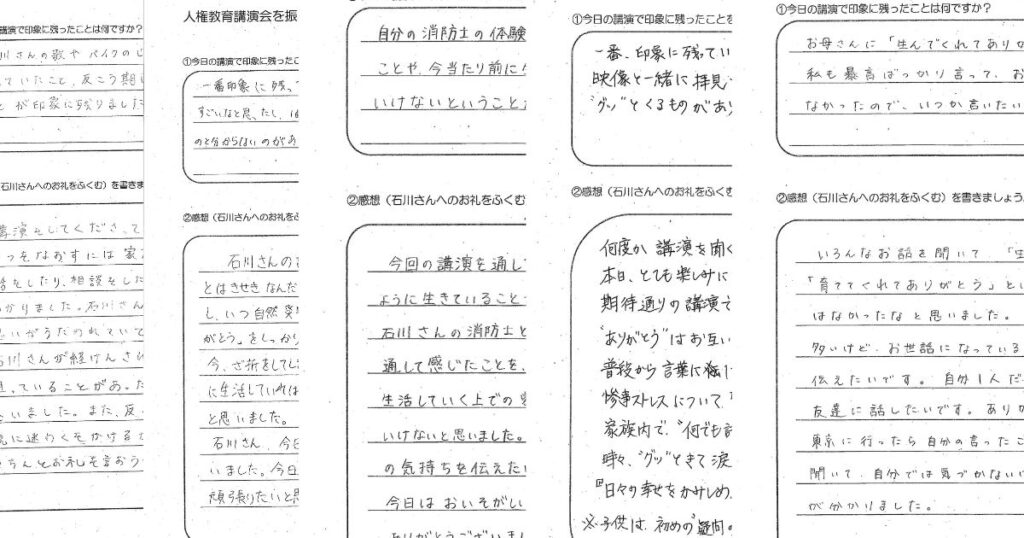 講演で印象に残ったことは何ですか?
川さんの歌や バイクのじ
ていたこと、反こう期い
とが印象に残りました
石川さんへのお礼をふくむ)を書きま
講演をしてくださって
っそなおすには 家
話をしたり、相談をした
かりました。石川さん
思いがうたわれていて
石川さんが経けんされ
ていることがあった
いました。また、反
人権教育講演会を振
①今日の講演で印象に残ったこ
一番印象に残っ
すごいなと思ったし、
のと分からないのがあ
②感想(石川さんへのお礼をふ
石川さんの
とはきせきなんだ
し、いつ自然災
がとう。をしっかり
今、ざ折をして
に生活していれば
と思いました。
石川さん、今日
いました。今日
頑張りたいと思
自分の消防士の体験
ことや、今当たり前に
いけないということ
②感想(石川さんへのお礼をふくむ
今回の講演を通し
ように生きていること
石川さんの消防士と
通して感じたことを、
生活していく上での
いけないと思いました。
の気持ちを伝えたい
今日は おいそがし
ありがとうございま
①今日の講演で印象に残ったことを
一番、印象に残ってい
映像と一緒に拝見
"グッ"とくるものがあ
②感想(石川さんへのお礼をふくむ
何度か 講演を聞く
本日、とても楽しみに
期待通りの講演で
"ありがとう"はお互い
普段から言葉に
惨事ストレスについて、
家族内で、"何でも言
時々、"グッ"ときて涙
『日々の幸せをかみしめ、
※子供は、初めの"疑問
①今日の講演で印象に残ったことは何ですか?
お母さんに「生んでくれてありが
私も暴言ばっかり言って、お
なかったので、いつか言いたい
②感想(石川さんへのお礼をふくむ)を書きましょう
いろんなお話を聞いて 「生
「育ててくれてありがとう」とい
はなかったなと思いました。
多いけど、お世話になっている
伝えたいです。自分1人だ
友達に話したいです。ありが
東京に行ったら自分の言ったこ
聞いて、自分では気づかない
が分かりました。